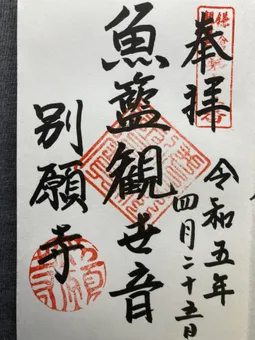 奉拝
令和五年
四月二十五日
魚籃観世音
別願寺